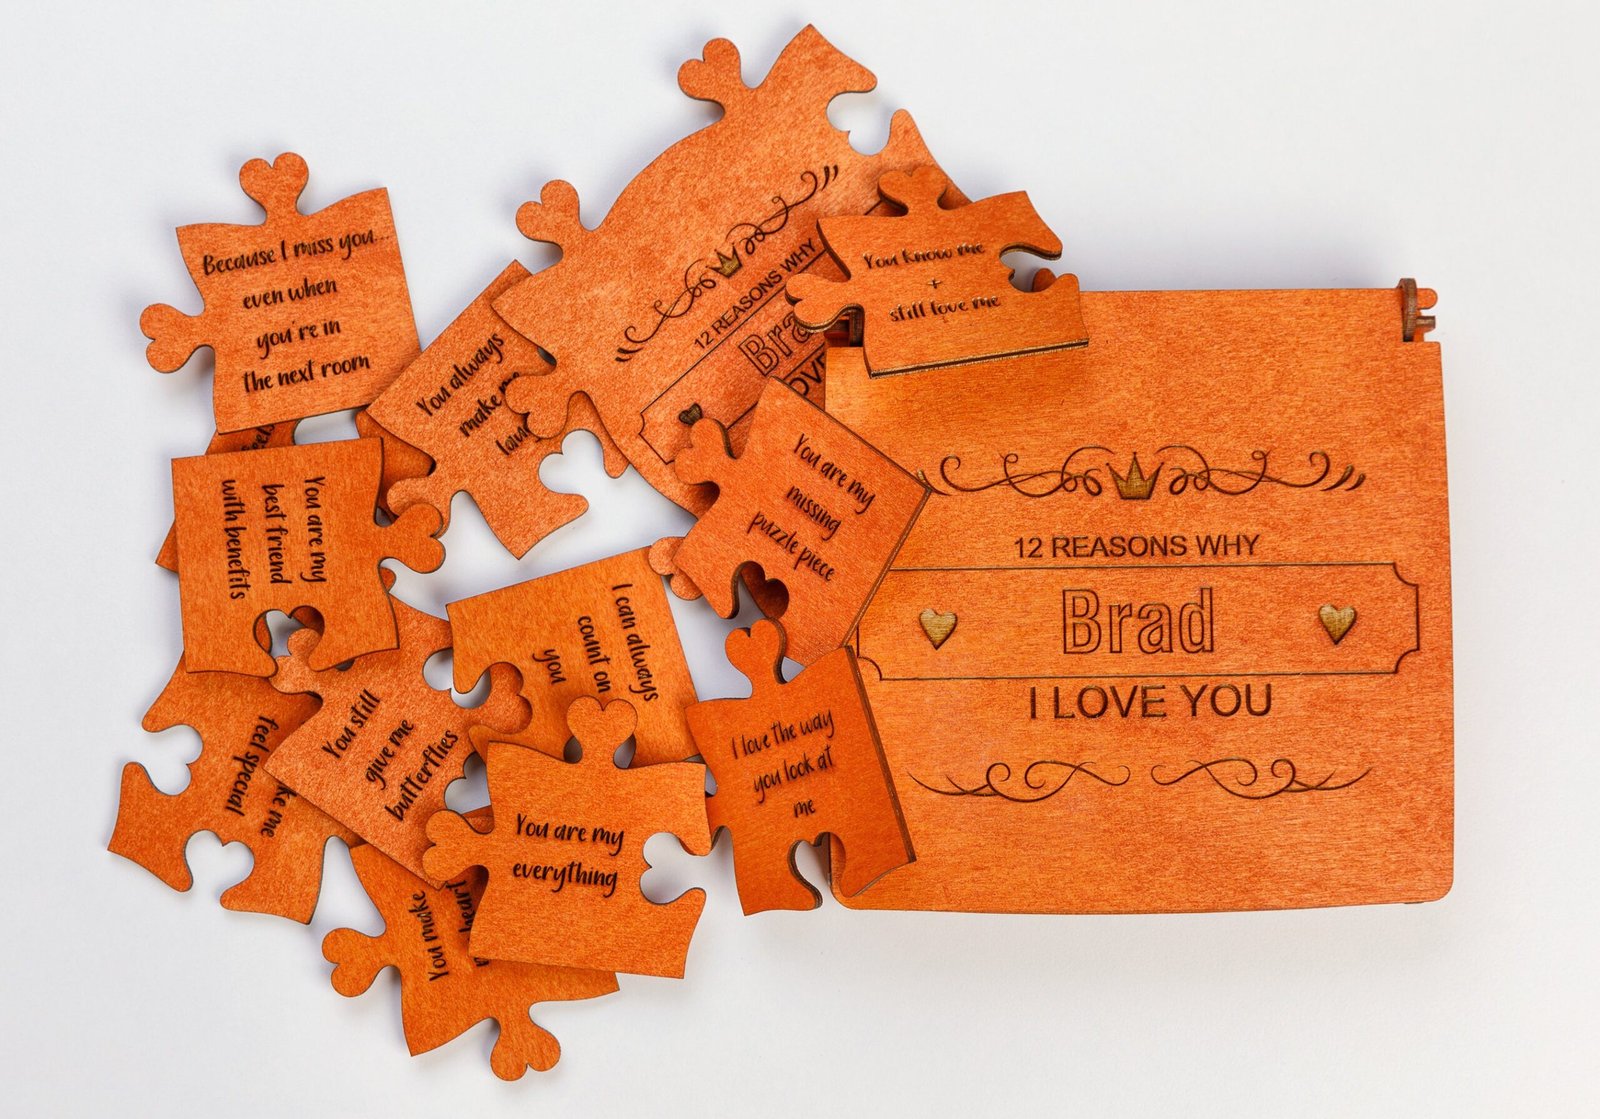 Because I miss you...
even when
you're in
the next room
You always
make
You know me
+
still love me
12 REASONS WHY
Bra
You are my
missing
puzzle piece
You are my
best friend
with benefits
I can always
count on
you
You still
give me
butterflies
me
feel special
I love the way
you look at
me
You are my
everything
You make
heart
12 REASONS WHY
Brad
I LOVE YOU